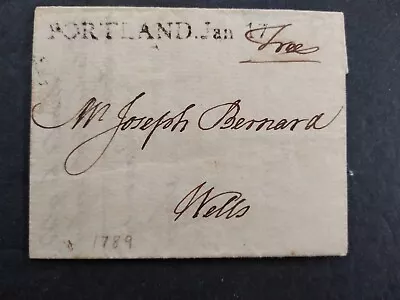 PORTLAND. Jan 17
Free
Mr Joseph Bernard
Wells
1789